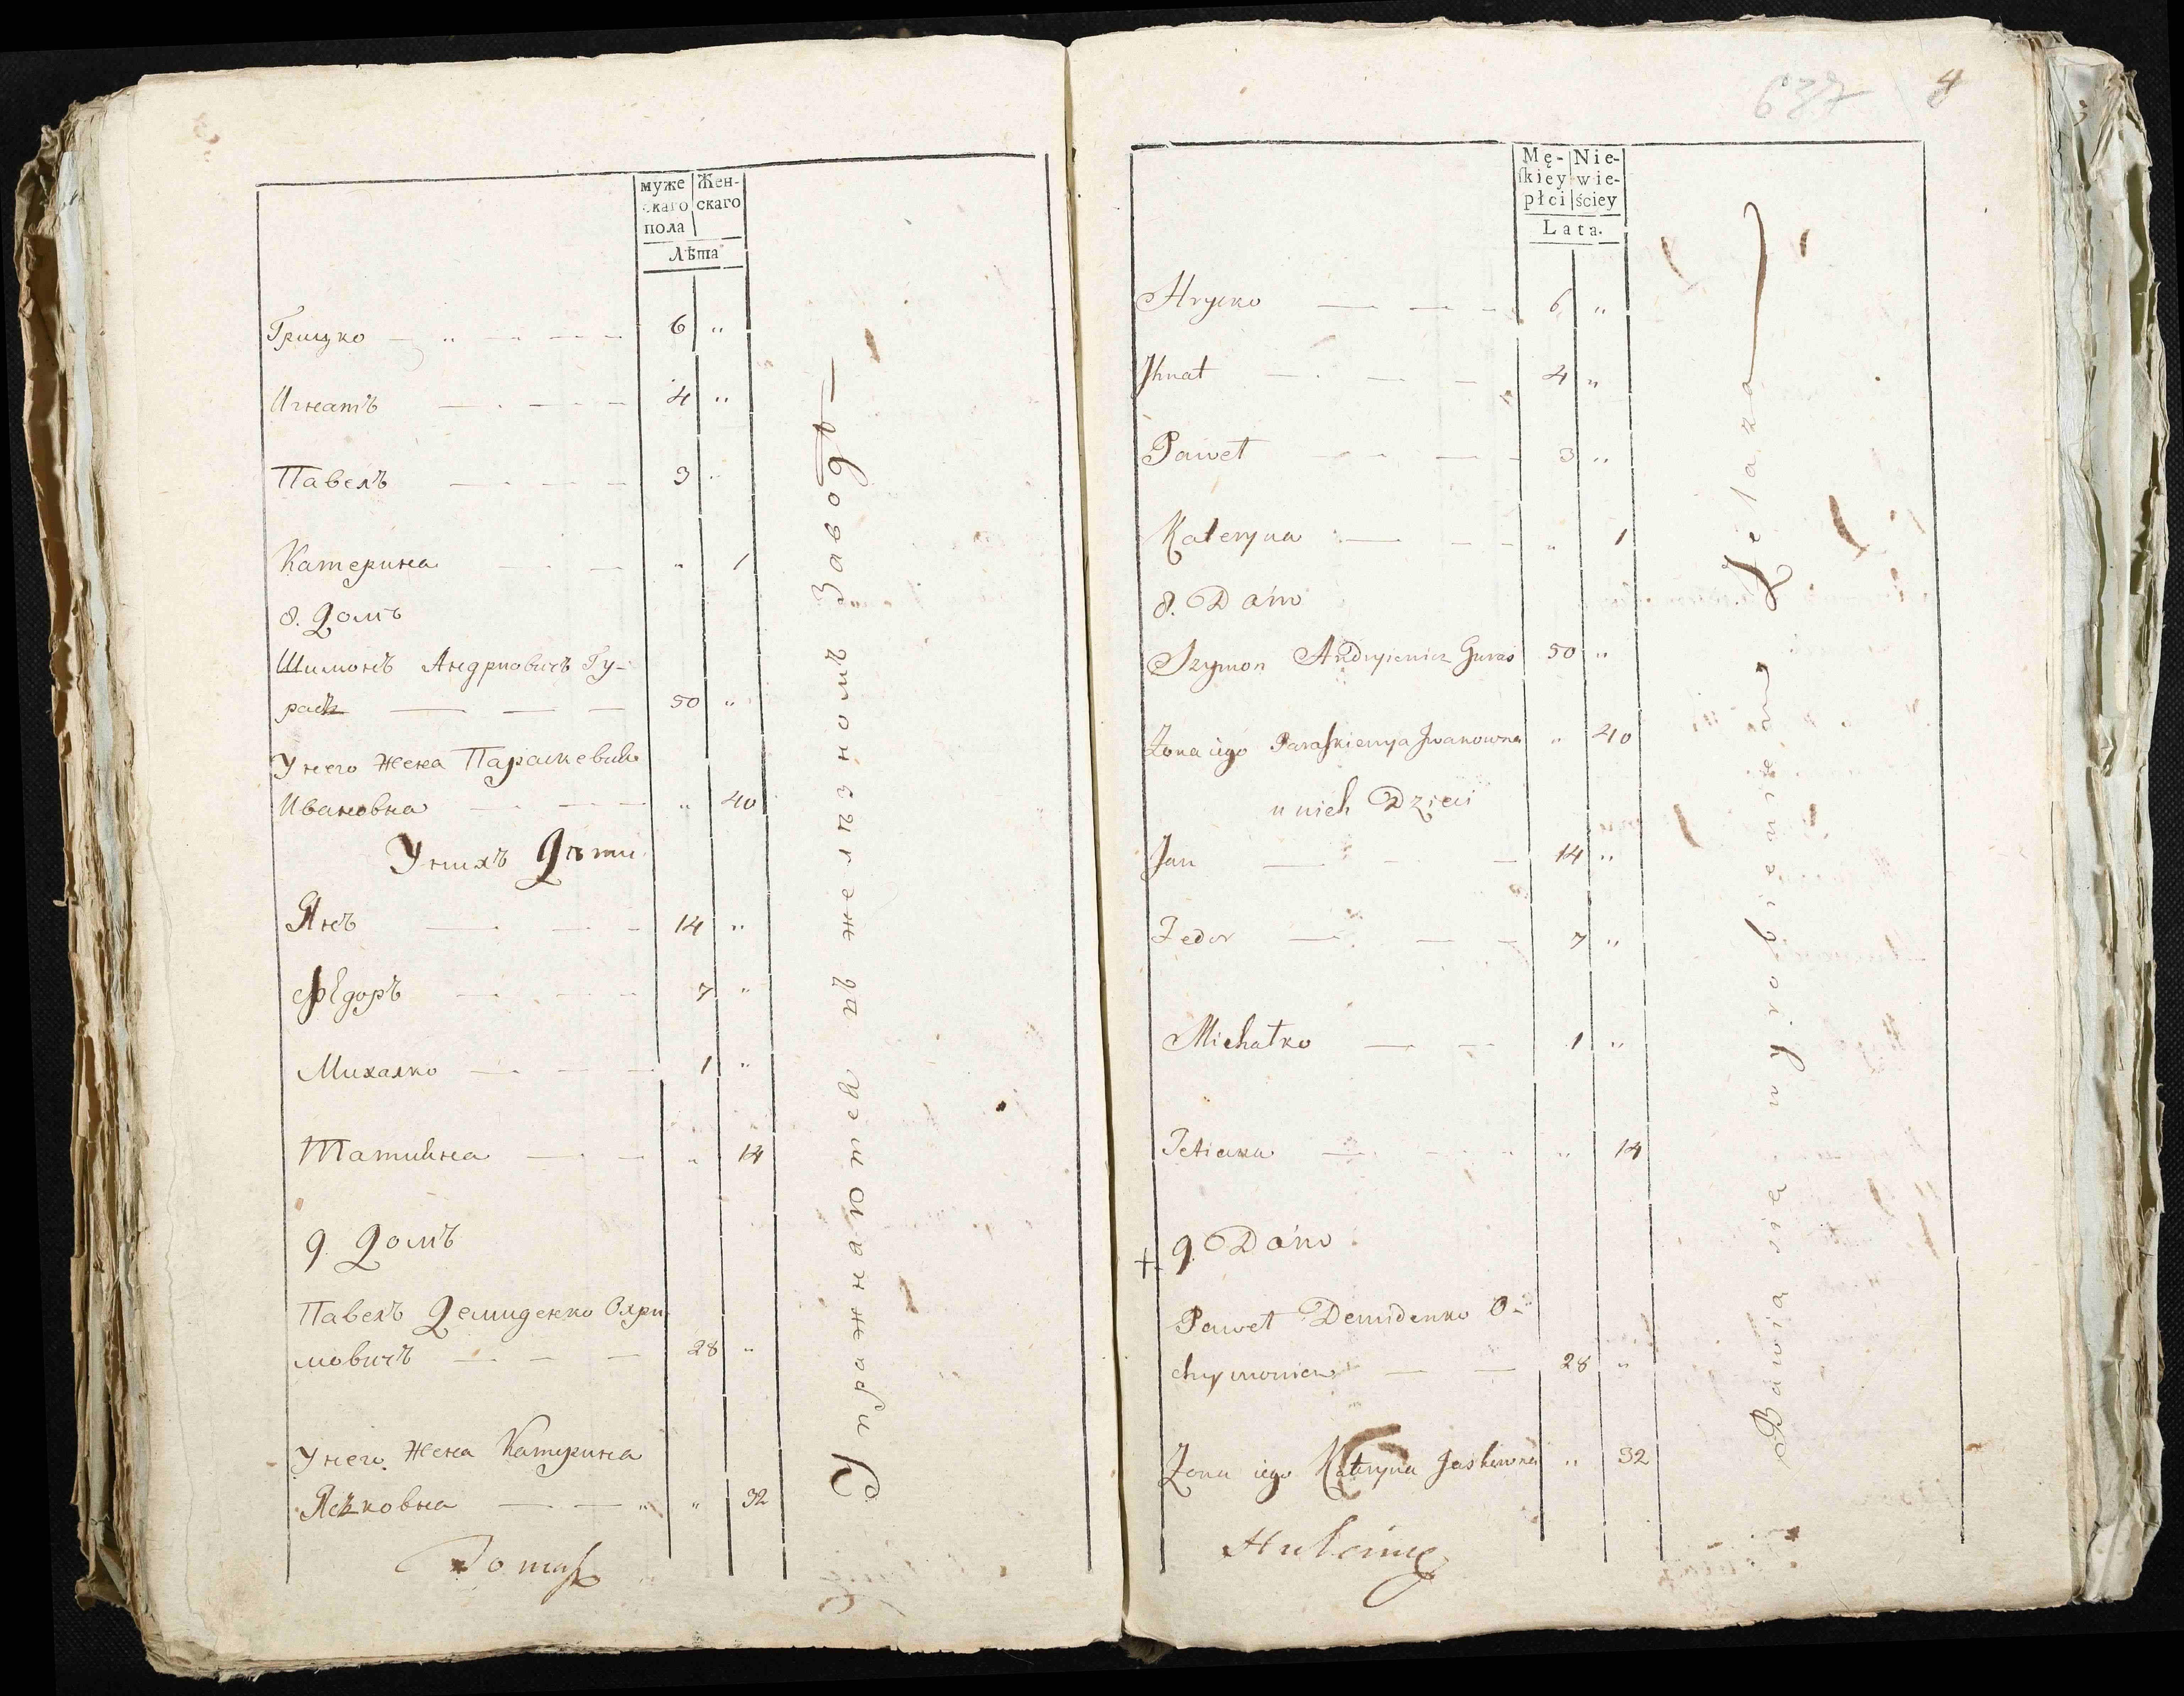 муже Жен-
скаго скаго
пола
Лѣта
Грицко 6 "
Игнатъ 4 "
Павелъ 3 "
Катерина " 1
8. Домъ
Шимонъ Андриовичъ Гу-
расъ 50 "
У него жена Параскевия
Ивановна " 40
У нихъ Дѣти
Янъ 14 "
Федоръ 7 "
Михалко 1 "
Татиана " 14
9. Домъ
Павелъ Демиденко Охри
мовичъ 28 "
У него жена Катерина
Ясковна " 32
Упражнаются при желѣзномъ Заводѣ
Tomasz
637 4
Mę- Nie-
ſkiey wie-
płci ściey
Lata.
Hrycko 6 "
Jhnat 4 "
Paweł 3 "
Kateryna " 1
8. Dóm
Szymon Andryiewicz Guras 50 "
Żona iego Paraſkiewya Jwanowna " 40
u nich Dzieci
Jan 14 "
Fedor 7 "
Michałko 1 "
Tetiana " 14
+ 9. Dóm
Paweł Demidenko O-
chrymowicz 28 "
Żona iego Kateryna Jaskowna " 32
Bawią się wyrobieniem Żelaza